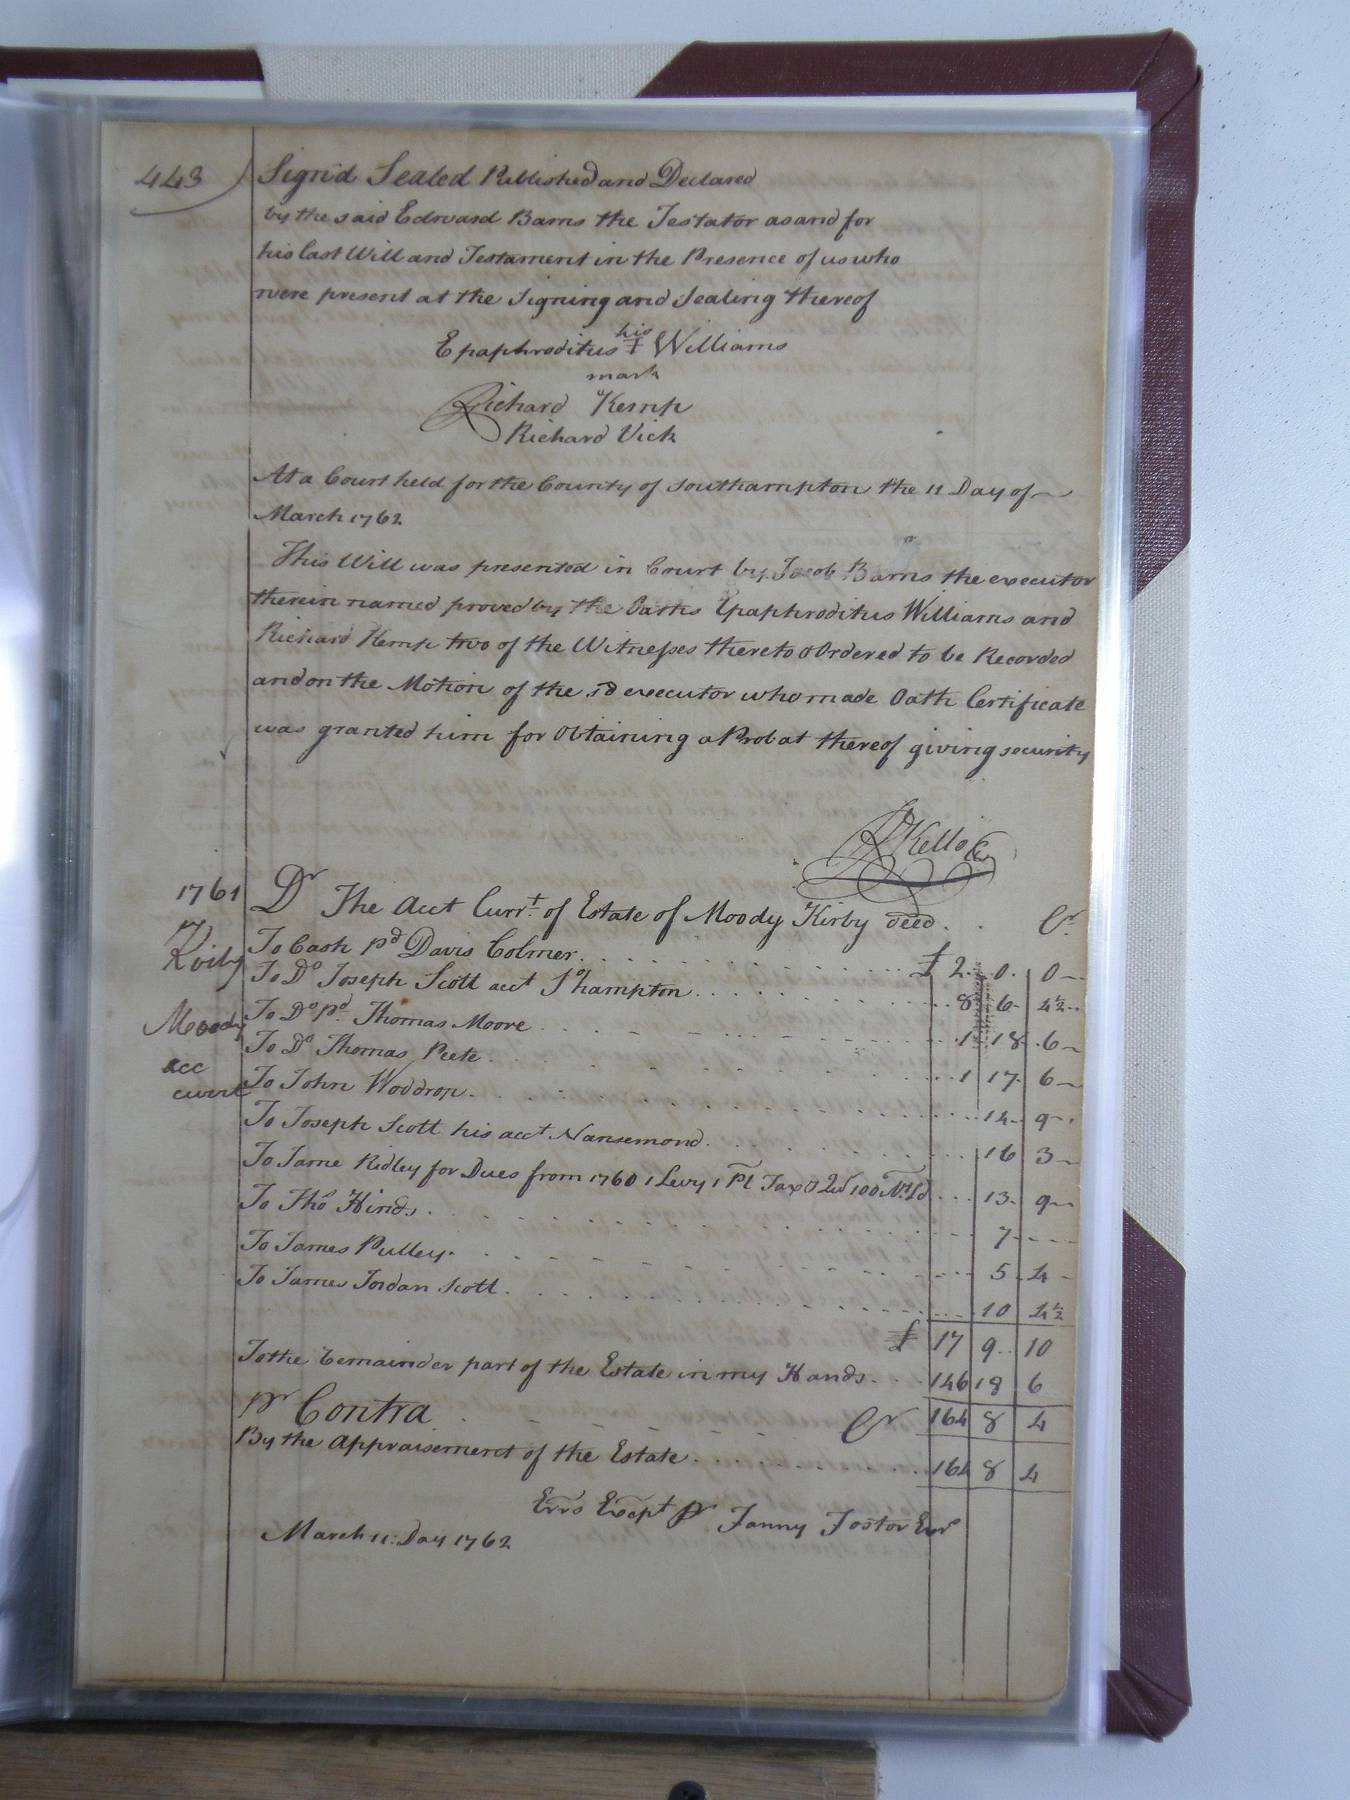 443
Signd Sealed Published and Declared
by the said Edward Barns the Testator as and for
his last Will and Testament in the Presence of us who
were present at the Signing and Sealing thereof
his
Epaphroditus + Williams
mark
Richard Kemp
Richard Vick
At a Court held for the County of Southampton the 11 Day of
March 1762
This Will was presented in Court by Jacob Barns the executor
therein named proved by the Oaths Epaphroditus Williams and
Richard Kemp two of the Witnesses thereto & Ordered to be Recorded
and on the Motion of the sd executor who made Oath Certificate
was granted him for Obtaining a Probat thereof giving security
R Kello Cr
1761 Dr The Acct Currt. of Estate of Moody Kirby deed. Cr
Kirby
Moody
acc
currt
To Cash pd Davis Colmer £ 2 0 0
To Do Joseph Scott acct So hampton 8 6 4½
To Do pd Thomas Moore 1 18 6
To Do Thomas Peete 1 17 6
To John Woddrop 14 9
To Joseph Scott his acct Nansemond 16 3
To Jame Ridley for Dues from 1760 1 Levy 1 Pl Tax & 100
13 9
To Tho Hinds 7
To James Pulley 5 4
To James Jordan Scott 10 4½
£ 17 9 10
To the Remainder part of the Estate in my Hands 146 18 6
pr Contra Cr 164 8 4
By the Appraisement of the Estate 164 8 4
Errs Except pr Fanny Foster Exr
March 11: Day 1762